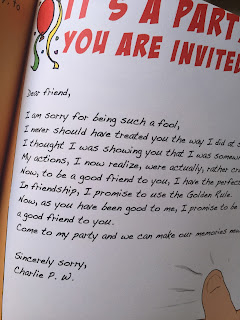 IT'S A PART
YOU ARE INVITE
Dear friend,
I am sorry for being such a fool,
I never should have treated you the way I did at s
I thought I was showing you that I was somew
My actions, I now realize, were actually, rather cr
Now, to be a good friend to you, I have the perfec
In friendship, I promise to use the Golden Rule.
Now, as you have been good to me, I promise to be
a good friend to you.
Come to my party and we can make our memories
Sincerely sorry,
Charlie P. W.